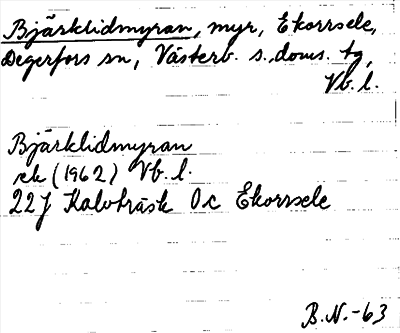 Bjärklidmyran, myr, Ekorrsele,
Degerfors sn, Västerb. s. doms. tg,
Vb. l.
Bjärklidmyran
ek (1962) Vb. l.
22J Kalvträsk 0c Ekorrsele
B.N.-63